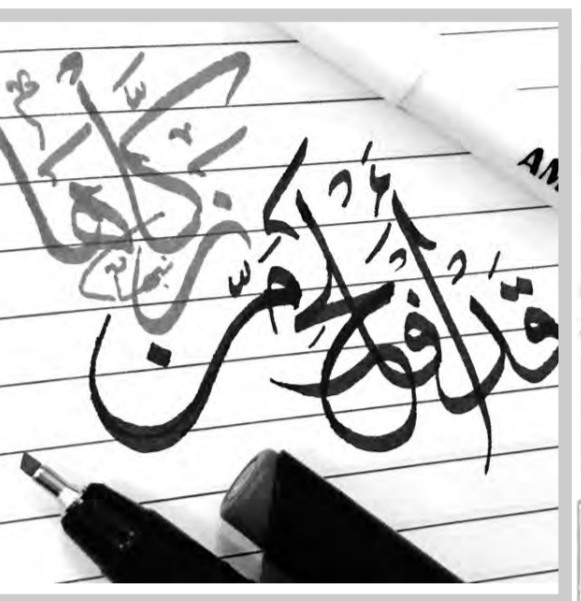 قَدْ أَفْلَحَ مَنْ
زَكَّاهَا
AM